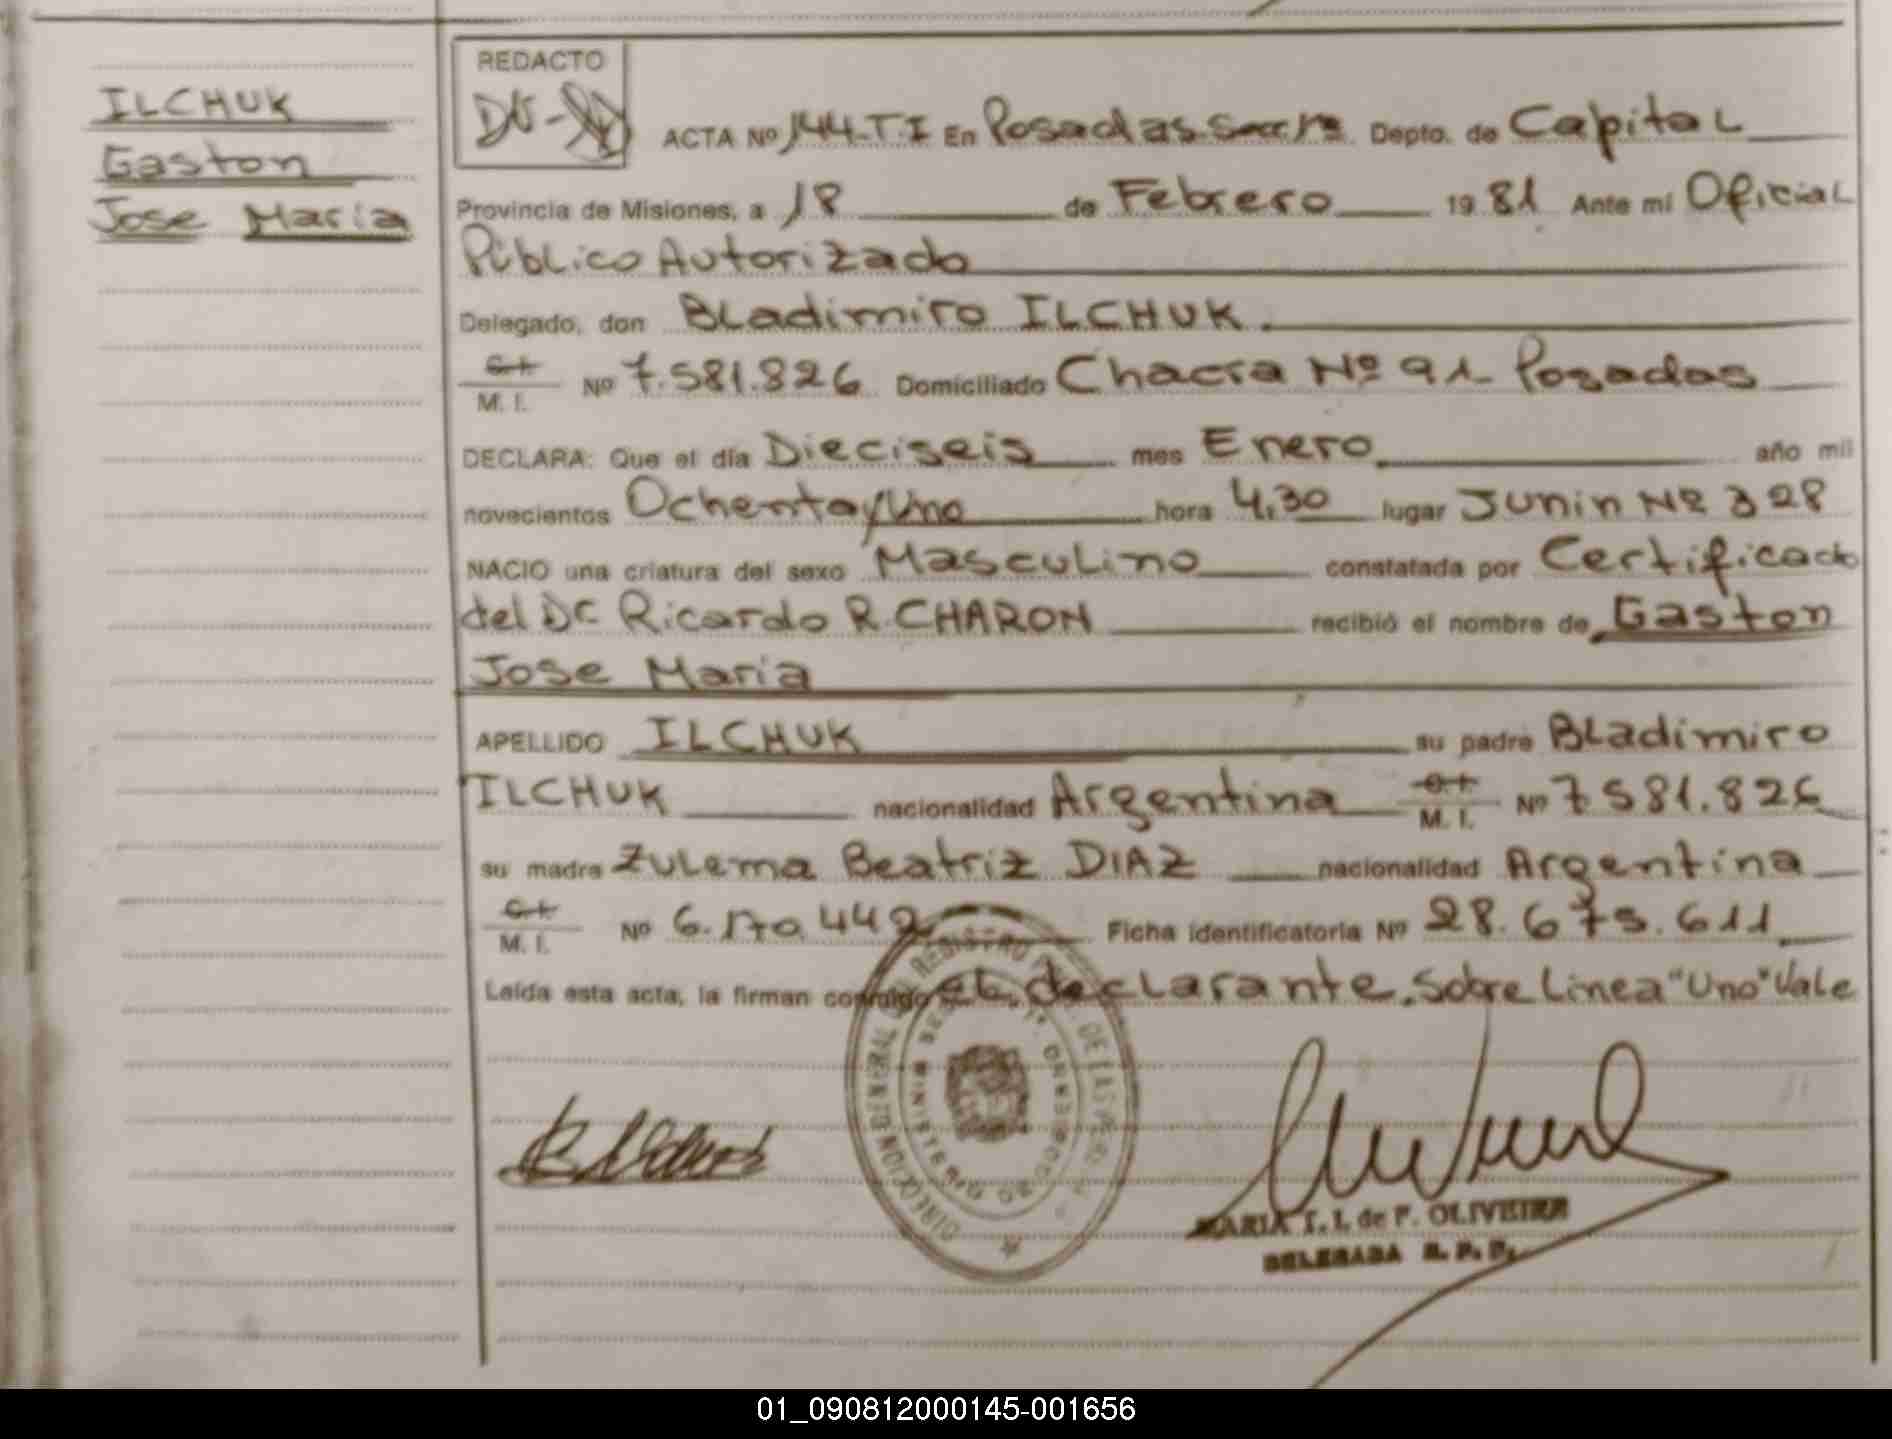 ILCHUK
Gaston
Jose Maria
REDACTO
ACTA Nº 144.T.I En Posadas Depto. de Capital
Provincia de Misiones, a 18 de Febrero 1981 Ante mi Oficial
Público Autorizado
Delegado, don Bladimiro ILCHUK.
M. I. Nº 7.581.826 Domiciliado Chacra Nº 91 Posadas
DECLARA: Que el día Dieciseis mes Enero año mil
novecientos Ochenta y Uno hora 4,30 lugar Junin Nº 328
NACIO una criatura del sexo Masculino constatada por Certificado
del Dr Ricardo R. CHARON recibió el nombre de Gaston
Jose Maria
APELLIDO ILCHUK su padre Bladimiro
ILCHUK nacionalidad Argentina M. I. Nº 7.581.826
su madre Zulema Beatriz DIAZ nacionalidad Argentina
M. I. Nº 6.170.442 Ficha identificatoria Nº 28.675.611
Leída esta acta, la firman conmigo el declarante. Sobre Linea "Uno" Vale
DIRECCION GENERAL DEL REGISTRO DE LAS PERSONAS
MINISTERIO DE GOBIERNO
MARIA T. I. de F. OLIVEIRA
DELEGADA R. P. P.
01_090812000145-001656